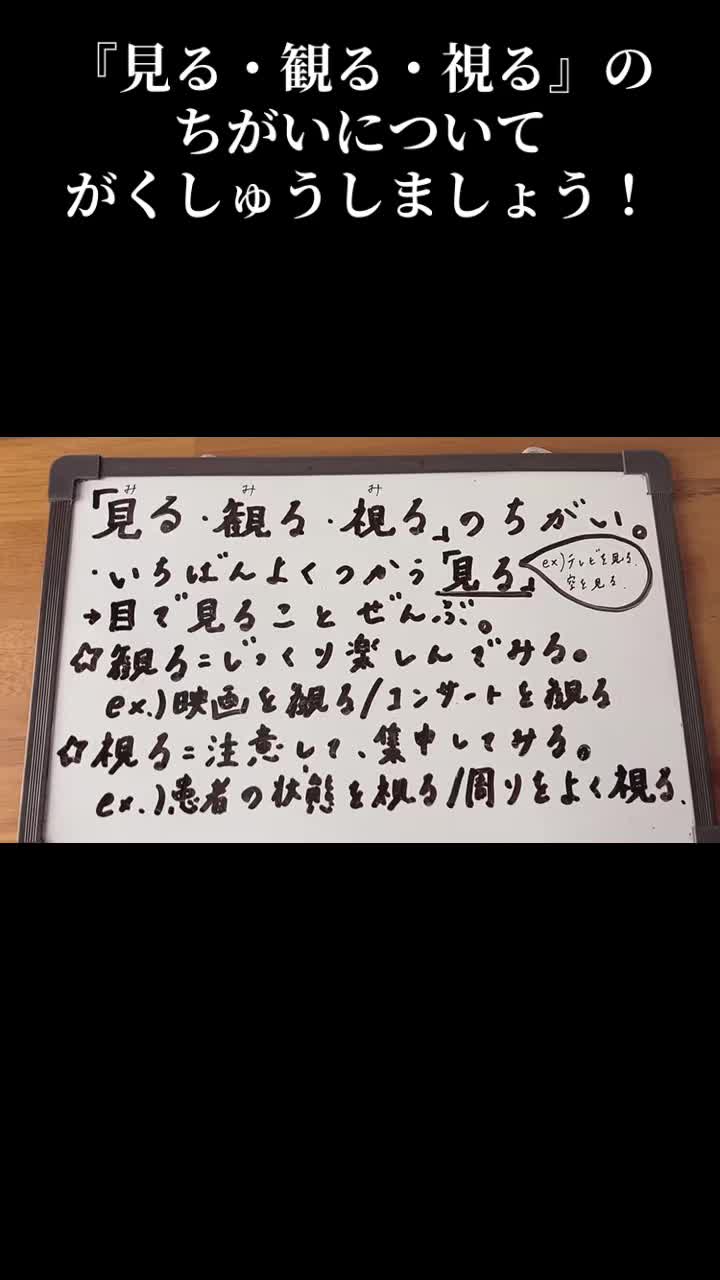 『見る・観る・視る』の
ちがいについて
がくしゅうしましょう！
み み み
「見る・観る・視る」のちがい。
・いちばんよくつかう「見る」
ex)テレビを見る、
空を見る、
→目で見ることぜんぶ。
☆観る=じっくり楽しんでみる。
ex.)映画を観る/コンサートを観る
☆視る=注意して、集中してみる。
ex.)患者の状態を視る/周りをよく視る、